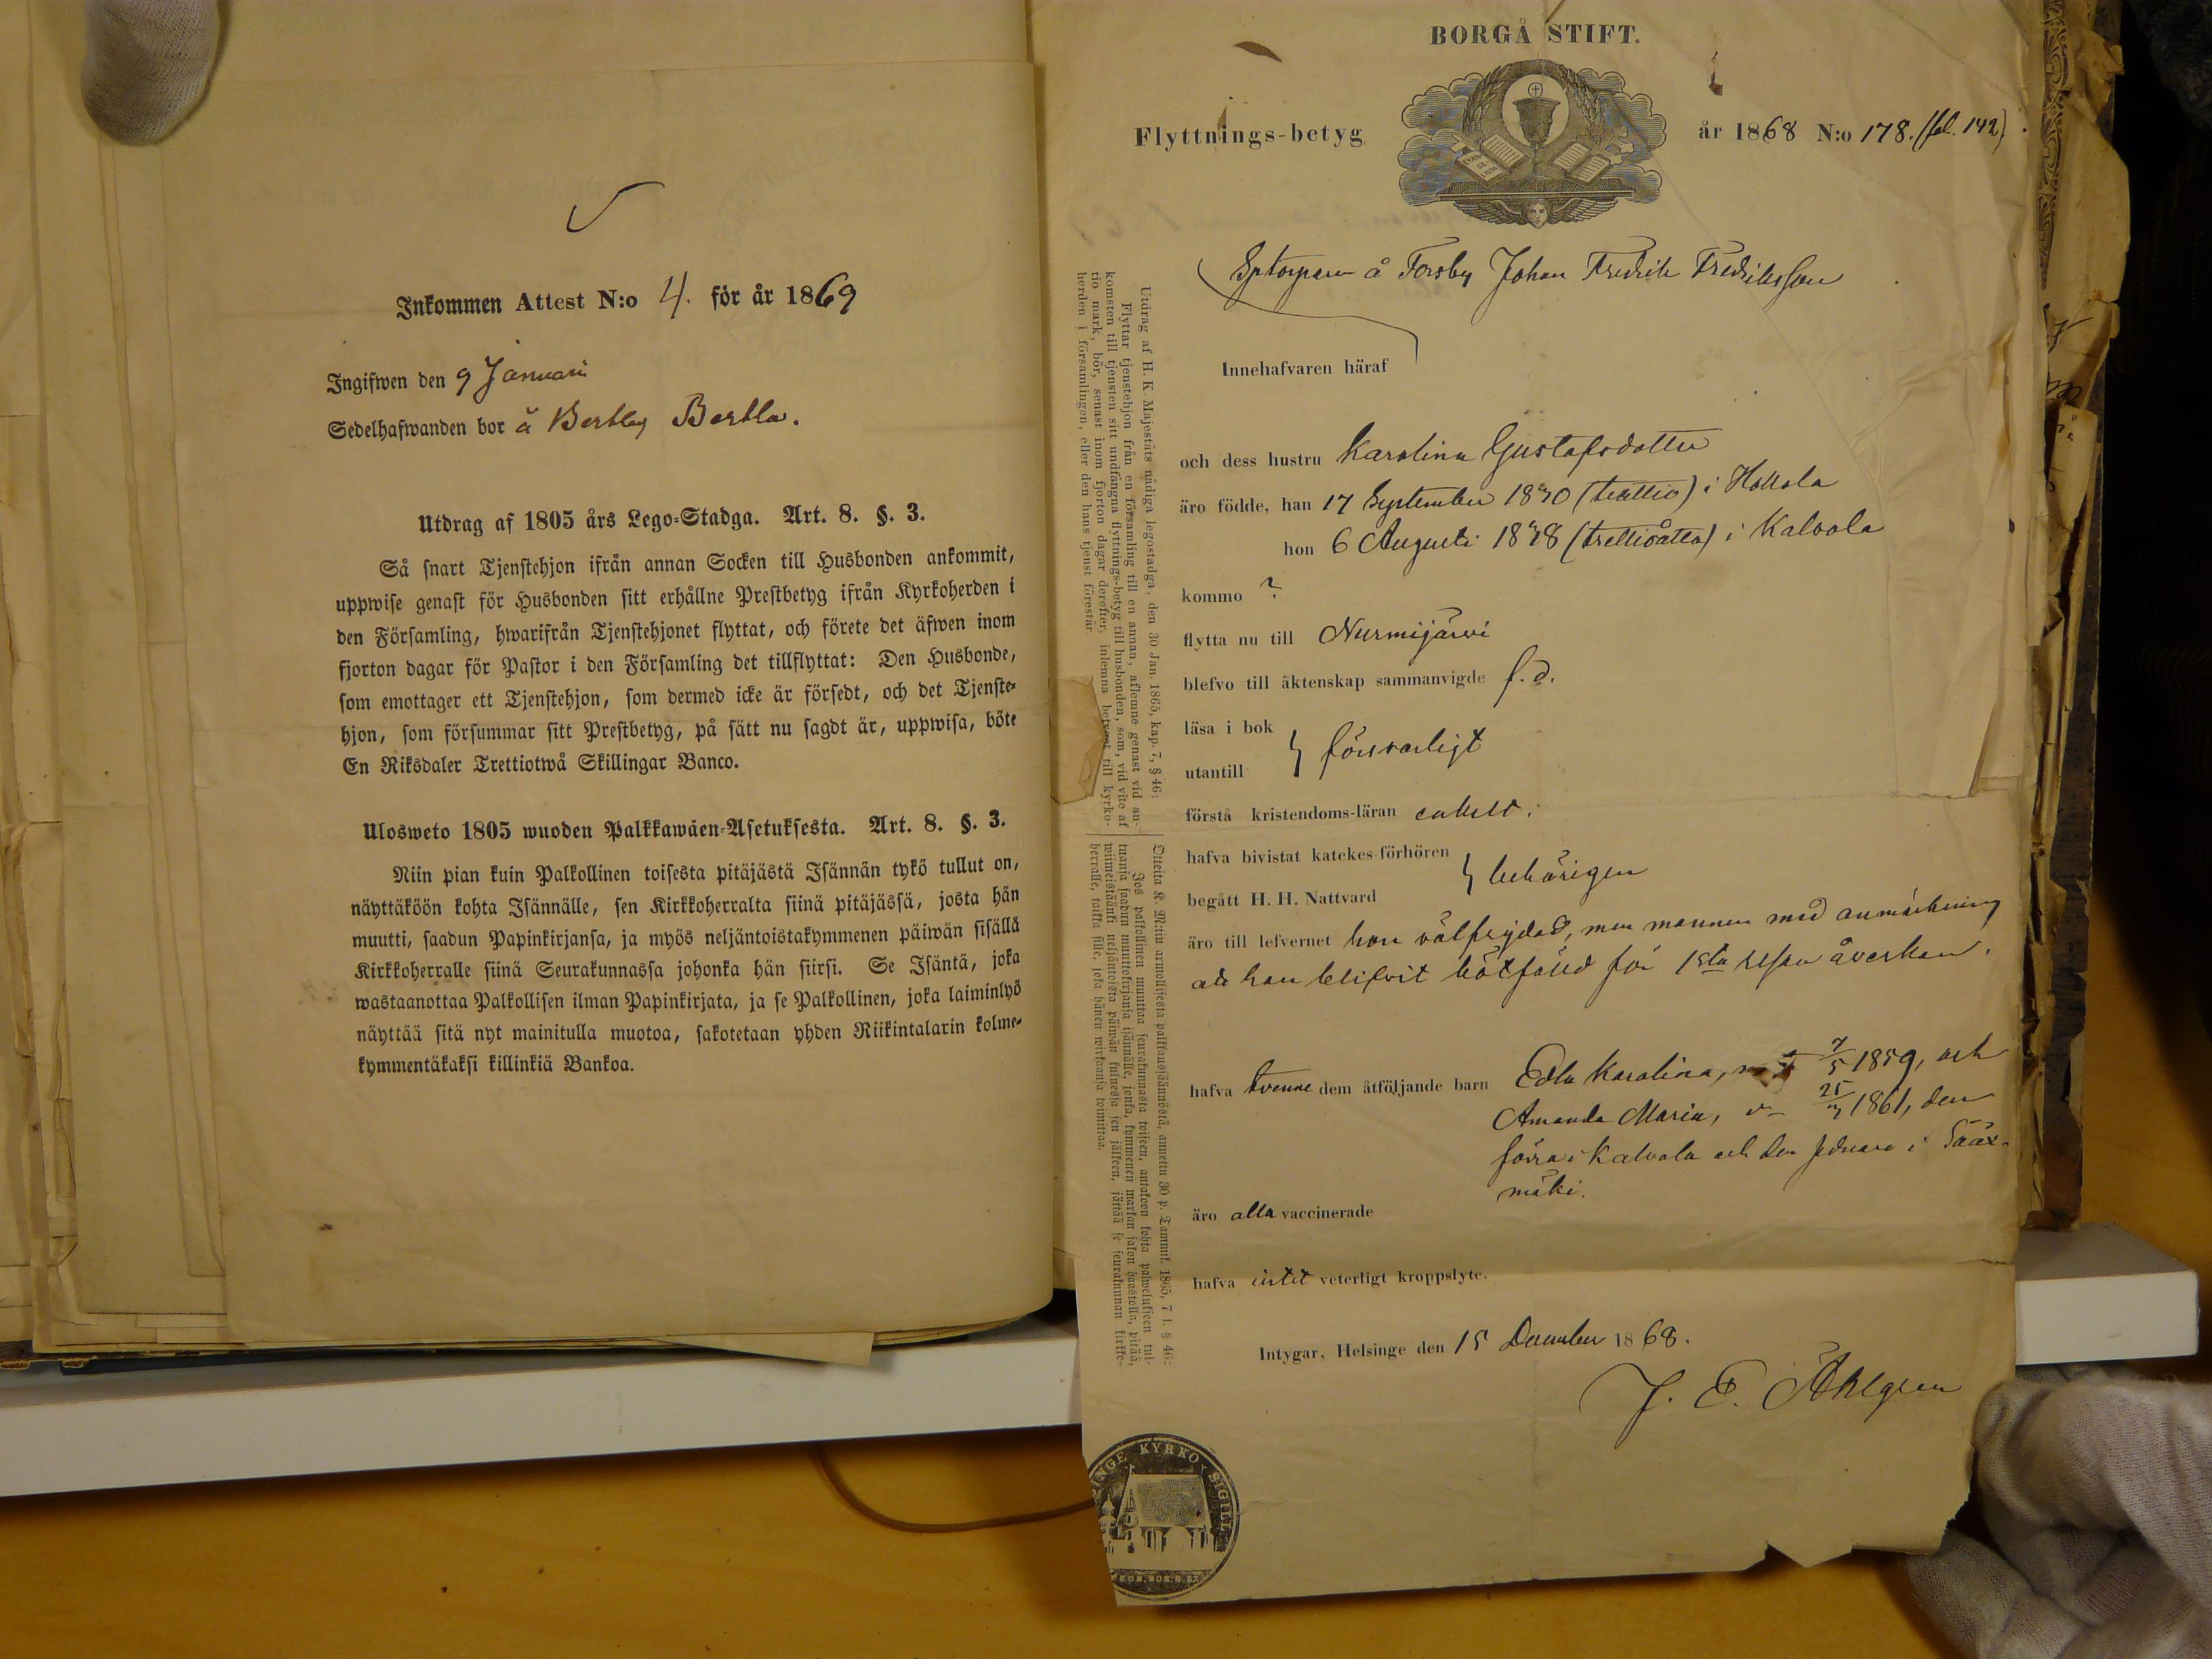 Inkommen Attest N:o 4. för år 1869
Ingifwen den 9 Januari
Sedelhafwanden bor å Bertby Bertla.
Utdrag af 1805 års Lego-Stadga. Art. 8. §. 3.
Så snart Tjenstehjon ifrån annan Socken till Husbonden ankommit,
uppwise genast för Husbonden sitt erhållne Prestbetyg ifrån Kyrkoherden i
den Församling, hwarifrån Tjenstehjonet flyttat, och förete det äfwen inom
fjorton dagar för Pastor i den Församling det tillflyttat: Den Husbonde,
som emottager ett Tjenstehjon, som dermed icke är försedt, och det Tjenste-
hjon, som försummar sitt Prestbetyg, på sätt nu sagdt är, uppwisa, böte
En Riksdaler Trettiotwå Skillingar Banco.
Ulosweto 1805 wuoden Palkkawäen-Asetuksesta. Art. 8. §. 3.
Niin pian kuin Palkollinen toisesta pitäjästä Isännän tykö tullut on,
näyttäköön kohta Isännälle, sen Kirkkoherralta siinä pitäjässä, josta hän
muutti, saadun Papinkirjansa, ja myös neljäntoistakymmenen päiwän sisällä
Kirkkoherralle siinä Seurakunnassa johonka hän siirsi. Se Isäntä, joka
wastaanottaa Palkollisen ilman Papinkirjata, ja se Palkollinen, joka laiminlyö
näyttää sitä nyt mainitulla muotoa, sakotetaan yhden Riikintalarin kolme-
kymmentäkaksi killinkiä Bankoa.
BORGÅ STIFT.
Flyttnings-betyg år 1868 N:o 178. (fol. 142)
å Forsby Johan Fredrik Fredriksson
Innehafvaren häraf
och dess hustru Karolina Gustafsdotter
äro födde, han 17 September 1830 (trettio) i Hollola
hon 6 Augusti 1838 (trettioåtta) i Kalvola
kommo ?
flytta nu till Nurmijärvi
blefvo till äktenskap sammanvigde f. d.
läsa i bok
utantill } försvarligt
förstå kristendoms-läran enkelt.
hafva bivistat katekes-förhören
begått H. H. Nattvard } behörigen
äro till lefvernet hon välfrejdad, men mannen med anmärkning
att han blifvit bötfäld för 1sta resan åverkan.
hafva tvenne dem åtföljande barn Edla Karolina, 7/5 1859, och
Amanda Maria, 1861, den
förra i Kalvola och den sednare i Sääx-
mäki.
äro alla vaccinerade
hafva intet veterligt kroppslyte.
Intygar, Helsinge den 15 December 1868.
J. E. Åhlgren
Utdrag af H. K. Majestäts nådiga legostadga, den 30 Jan. 1865, kap. 7, § 46:
Flyttar tjenstehjon från en församling till en annan, aflemne genast vid an-
komsten till tjensten sitt undfångna flyttnings-betyg till husbonden, som, vid vite af
tio mark, bör, senast inom fjorton dagar derefter, inlemna betyget till kyrko-
herden i församlingen, eller den hans tjenst förestår.
Otteita K. M:tin armollisesta palkkaussäännöstä, annettu 30 p. Tammik. 1865, 7 l. § 46:
Jos palkollinen muuttaa seurakunnasta toiseen, antakoon kohta palwelukseen tul-
tuansa saadun muuttokirjansa isännälle, jonka, kymmenen markan sakon haastolla, pitää,
wiimeistäänki neljäntoista päiwän kuluessa sen jälkeen, jättää se seurakunnan kirkko-
herralle, taikka sille, joka hänen wirkansa toimittaa.
INGE KYRKO SIGILL